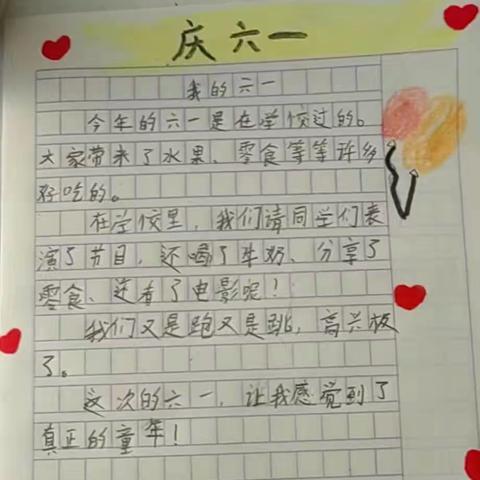 庆六一
我的六一
今年的六一是在学校过的。
大家带来了水果、零食等等许多
好吃的。
在学校里，我们请同学们表
演了节目，还喝了牛奶、分享了
零食、还看了电影呢！
我们又是跑又是跳，高兴极
了。
这次的六一，让我感觉到了
真正的童年！